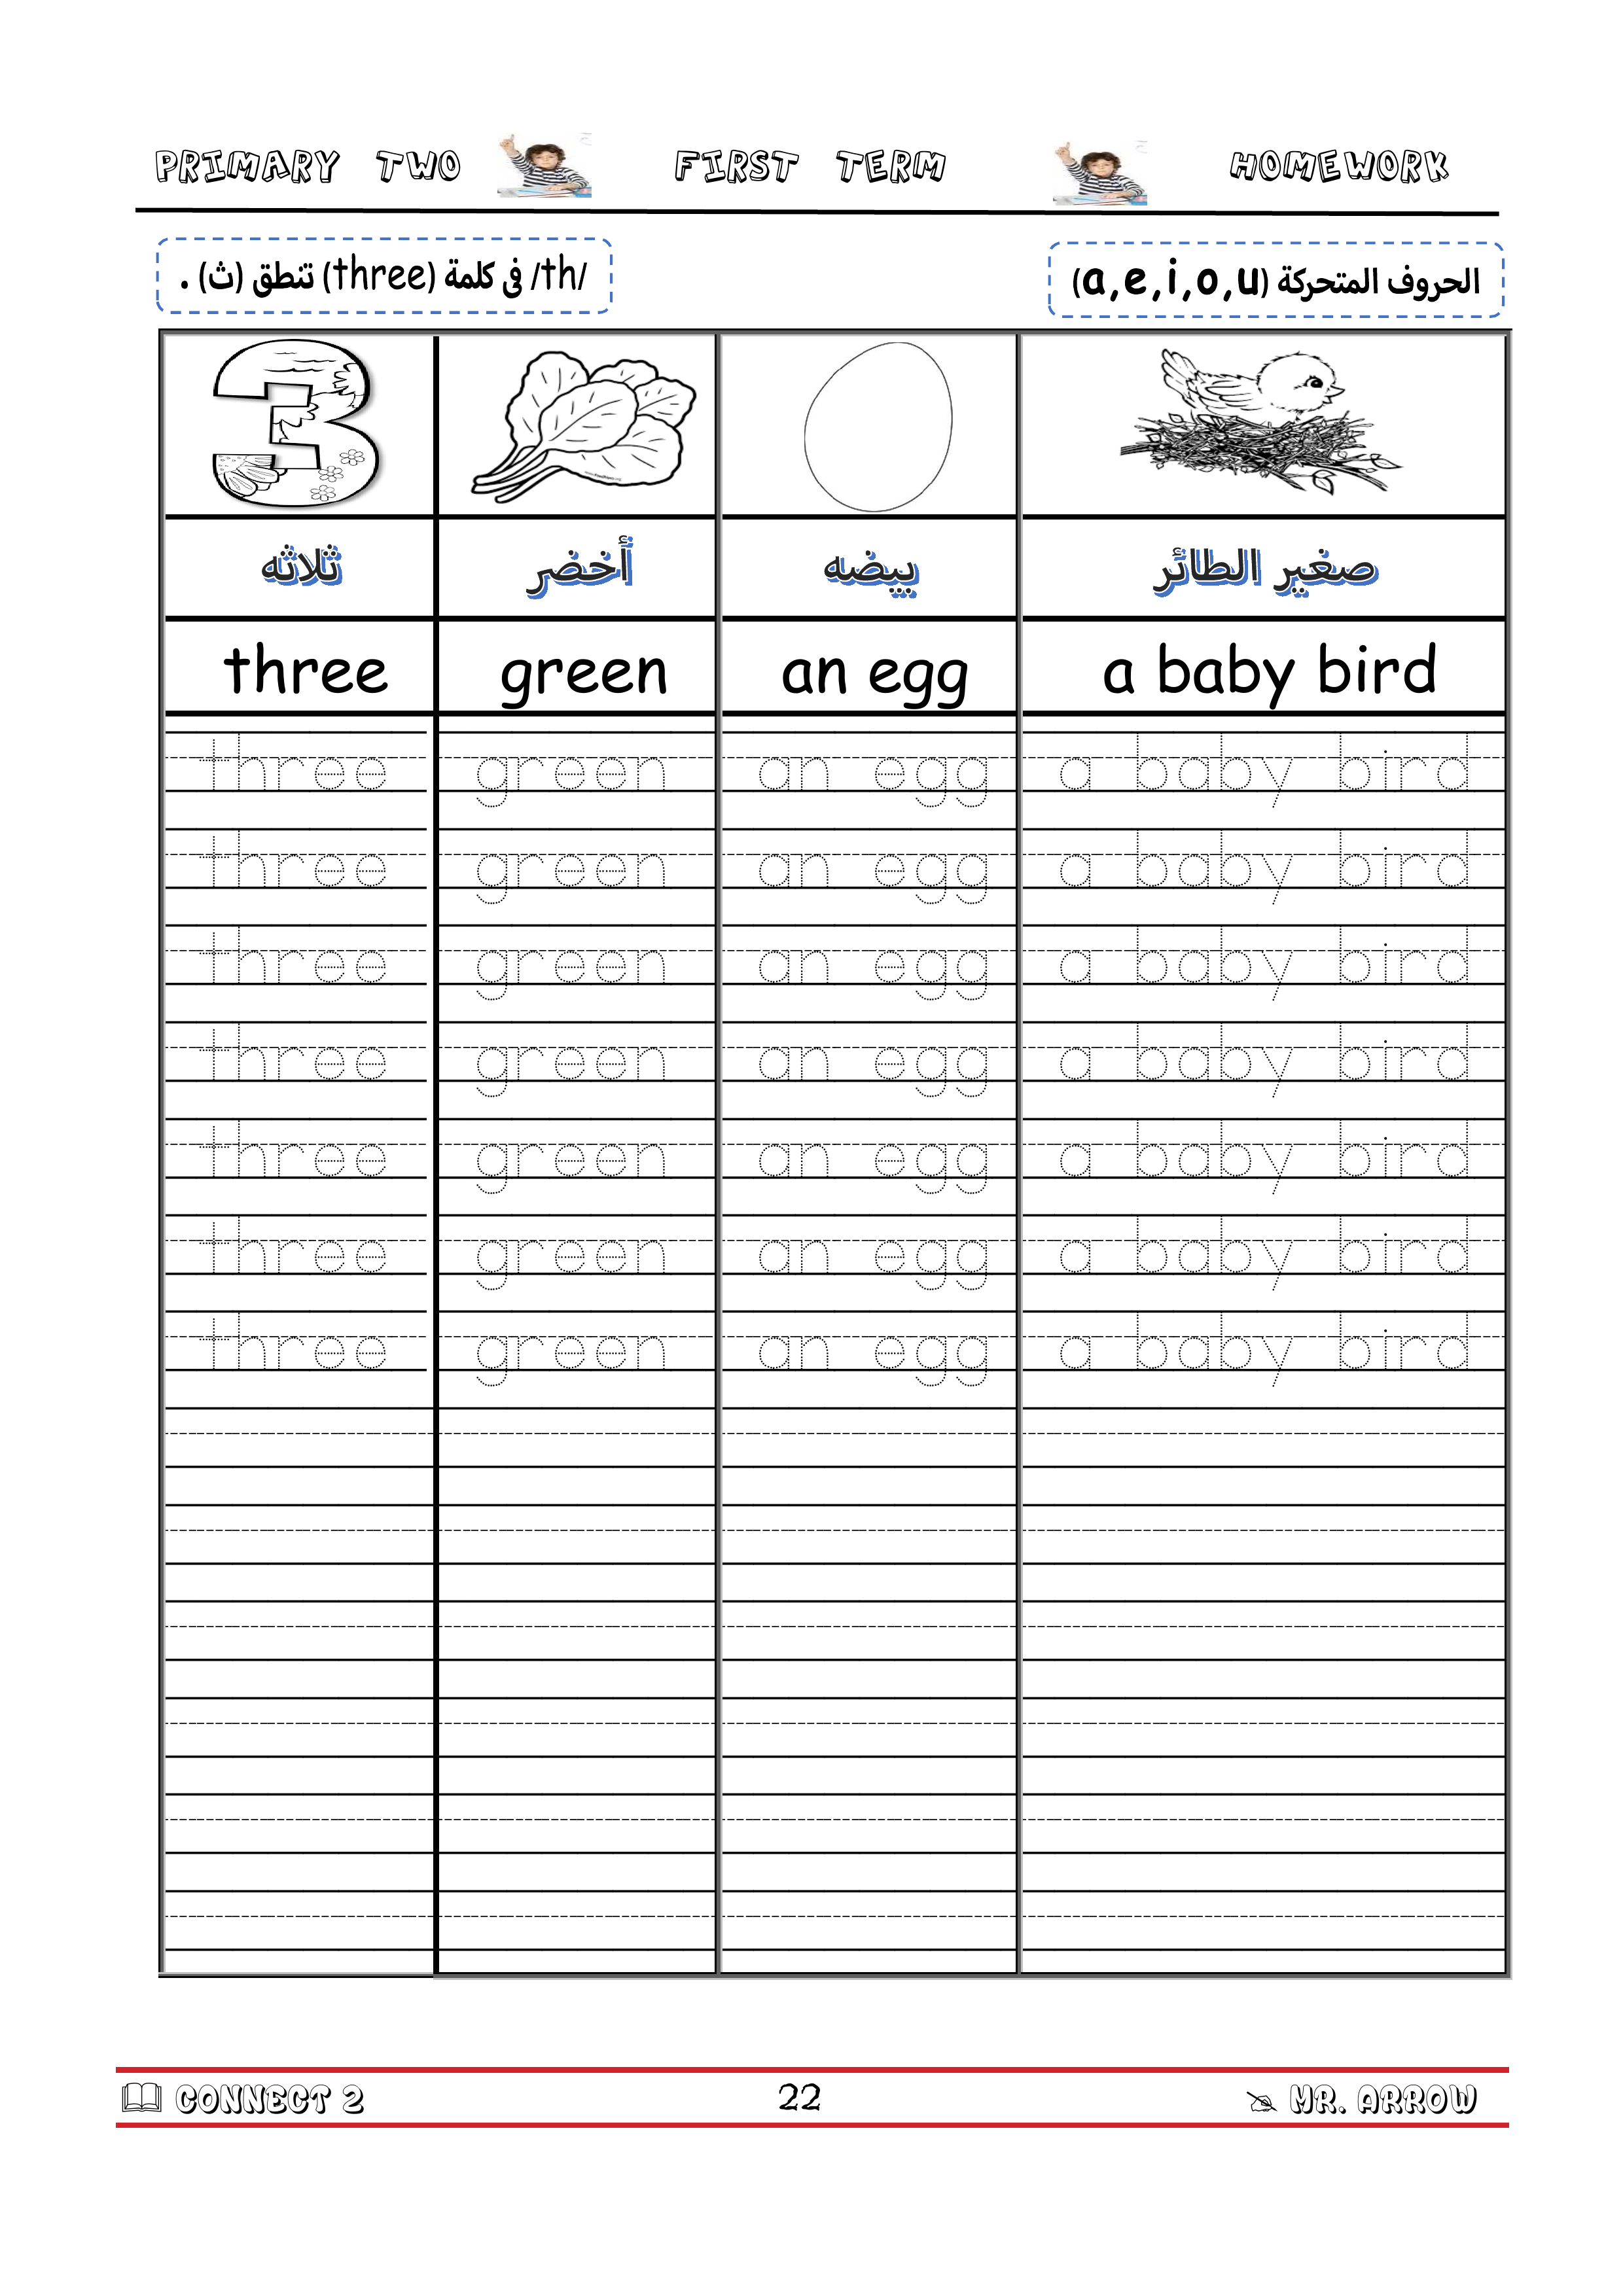 PRIMARY TWO FIRST TERM HOMEWORK
/th/ فى كلمة (three) تنطق (ث) .
الحروف المتحركة (a,e,i,o,u)
ثلاثه أخضر بيضه صغير الطائر
three green an egg a baby bird
three green an egg a baby bird
three green an egg a baby bird
three green an egg a baby bird
three green an egg a baby bird
three green an egg a baby bird
three green an egg a baby bird
three green an egg a baby bird
CONNECT 2 22 MR. ARROW